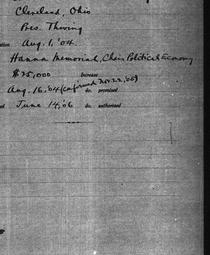 Cleveland, Ohio
Pres. Thwing
Aug. 1, '04.
Hanna Memorial, Chair Political Economy
$25,000 Increase
Aug. 16, '04 (confirmed Nov. 22, '05) do. promised
June 14, '06 do. authorized